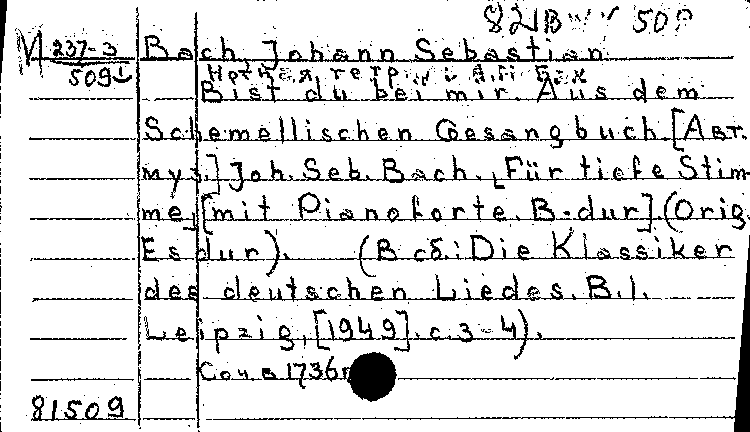 M 237-3
5091
Bach, Johann Sebastian
Нотная тетр
Bist du bei mir. Aus dem
Schemellischen Gesangbuch. [Авт.
муз.] Joh. Seb. Bach. Für tiefe Stim-
me, [mit Pianoforte. B-dur]. (Orig.
Es dur). (В сб.: Die Klassiker
des deutschen Liedes. B. 1.
Leipzig, [1949]. с. 3-4).
Соч. в 1736г
81509